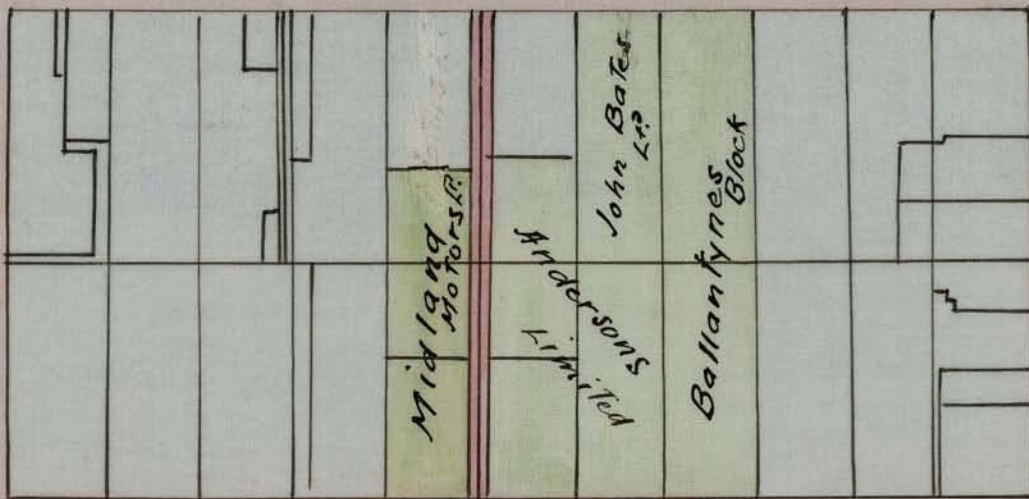 Midland
Motors Lᵈ.
Andersons
Limited
John Bates
Lᵗᵈ
Ballantynes
Block